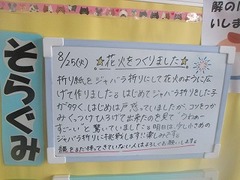 解の
いしま
そらぐみ
8/25(火) ☆花火をつくりました☆
折り紙をジャバラ折りにして花火のように広
げて作りました。はじめてジャバラ折りをした子
が多く、はじめは戸惑っていましたが、コツをつか
みくっつけひろげて出来たのを見て「うわぁー
すごーい」と驚いていました。明日は、少し小さめの
ジャバラ折りに挑戦します!楽しみです。